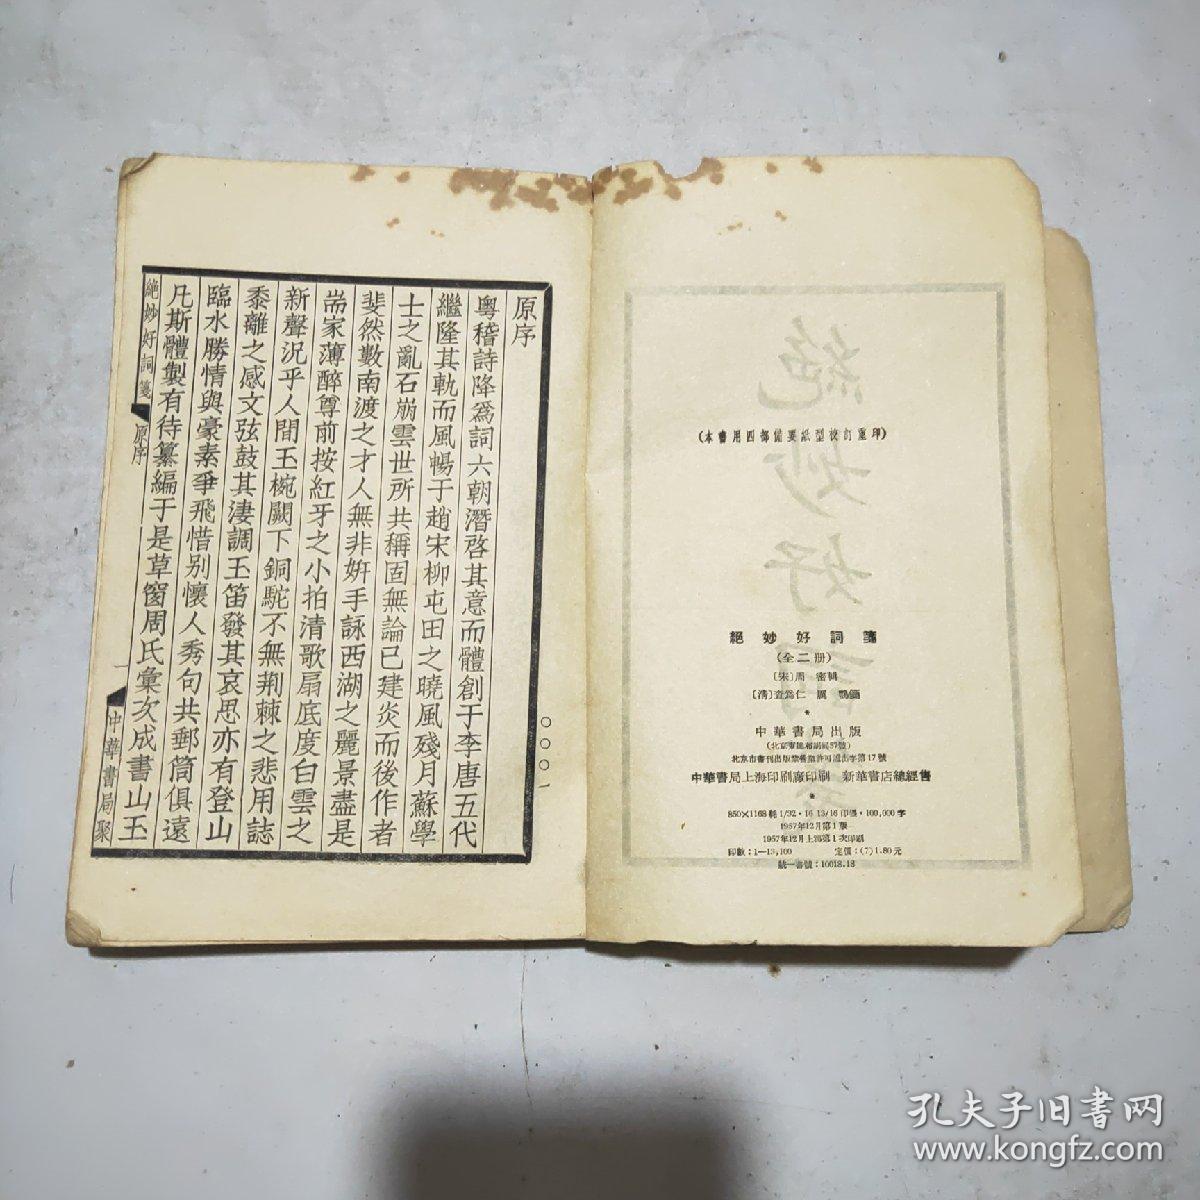 絕妙好詞
(本書用四部備要紙型校訂重印)
絕妙好詞箋
(全二册)
[宋]周密輯
[淸]查爲仁 厲鶚箋
*
中華書局出版
北京市書刊出版業營業許可證出字第17號
中華書局上海印刷廠印刷 新華書店總經售
*
850×1168耗1/32·16 13/16印張·100,000字
1957年12月第1版
1957年12月上海第1次印刷
印數:1—13,100 定價:(7)1.80元
統一書號:10018.18
原序
粵稽詩降爲詞六朝濳啓其意而體創于李唐五代
繼隆其軌而風暢于趙宋柳屯田之曉風殘月蘇學
士之亂石崩雲世所共稱固無論已建炎而後作者
斐然數南渡之才人無非姸手詠西湖之麗景盡是
耑家薄醉尊前按紅牙之小拍清歌扇底度白雲之
新聲況乎人間玉椀闕下銅駝不無荆棘之悲用誌
黍離之感文弦鼓其淒調玉笛發其哀思亦有登山
臨水勝情與豪素爭飛惜别懷人秀句共郵筒俱遠
凡斯體製有待纂編于是草窗周氏彙次成書山玉
絕妙好詞箋 原序 一 中華書局聚
〇〇〇一
孔夫子旧书网
www.kongfz.com